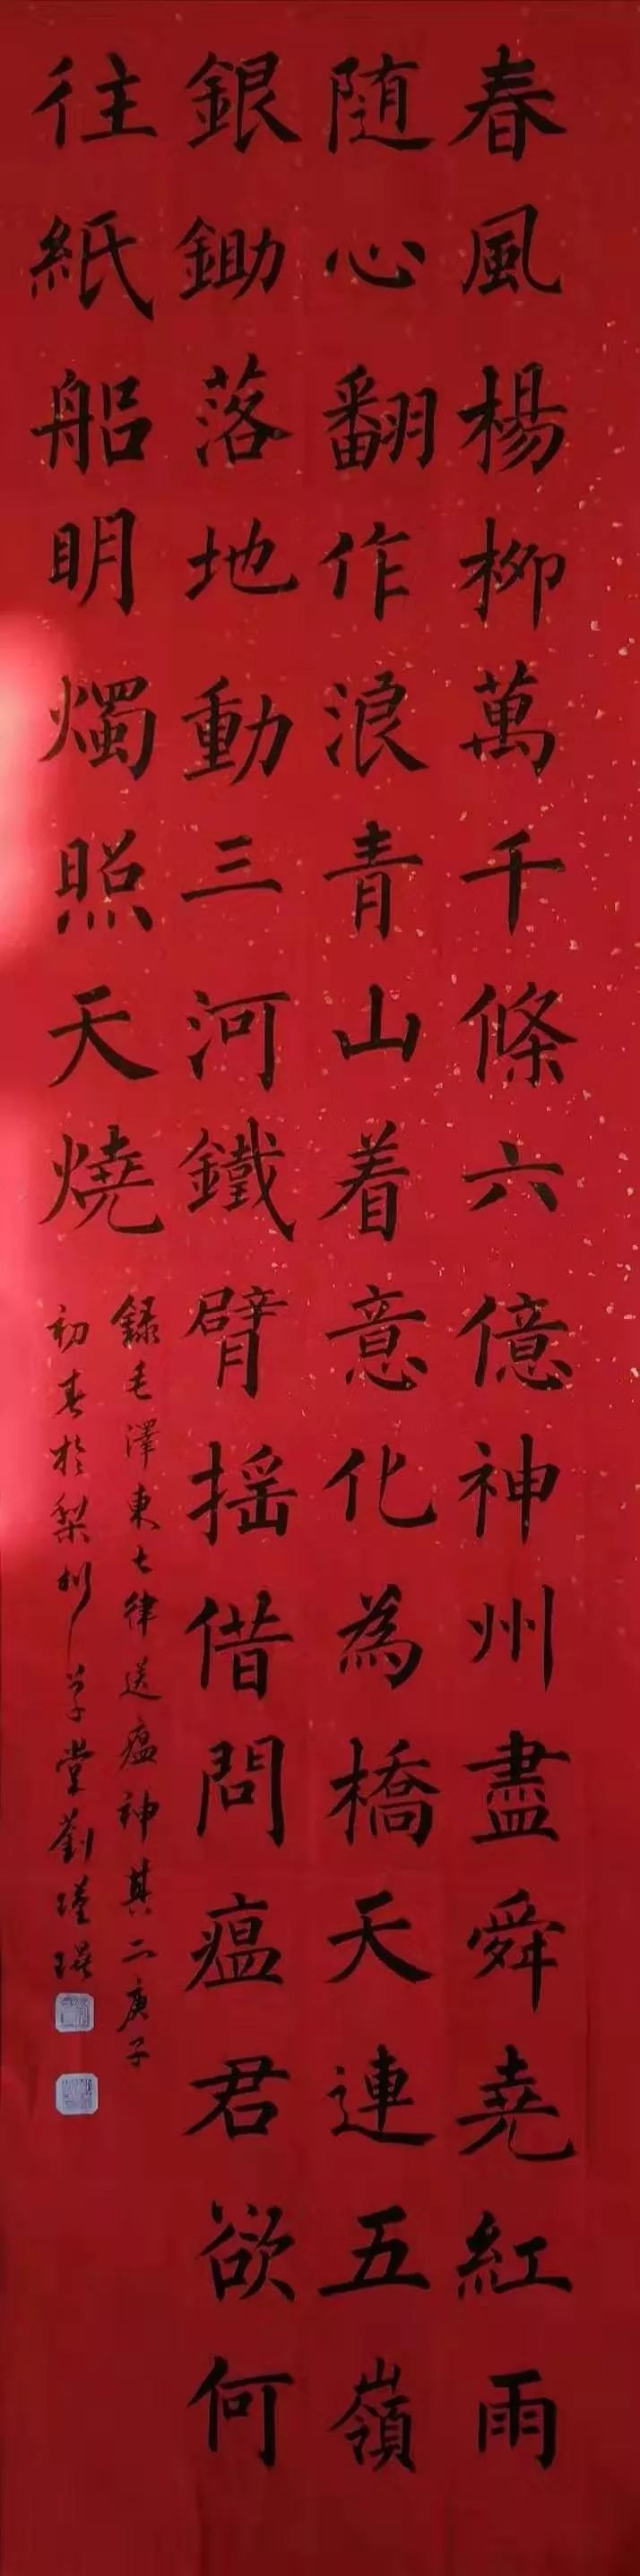 春風楊柳萬千條六億神州盡舜堯紅雨
随心翻作浪青山着意化為橋天連五嶺
銀鋤落地動三河鐵臂揺借問瘟君欲何
往紙船明燭照天燒
録毛澤東七律送瘟神其二庚子
初春於梨村草堂劉瑾瑛